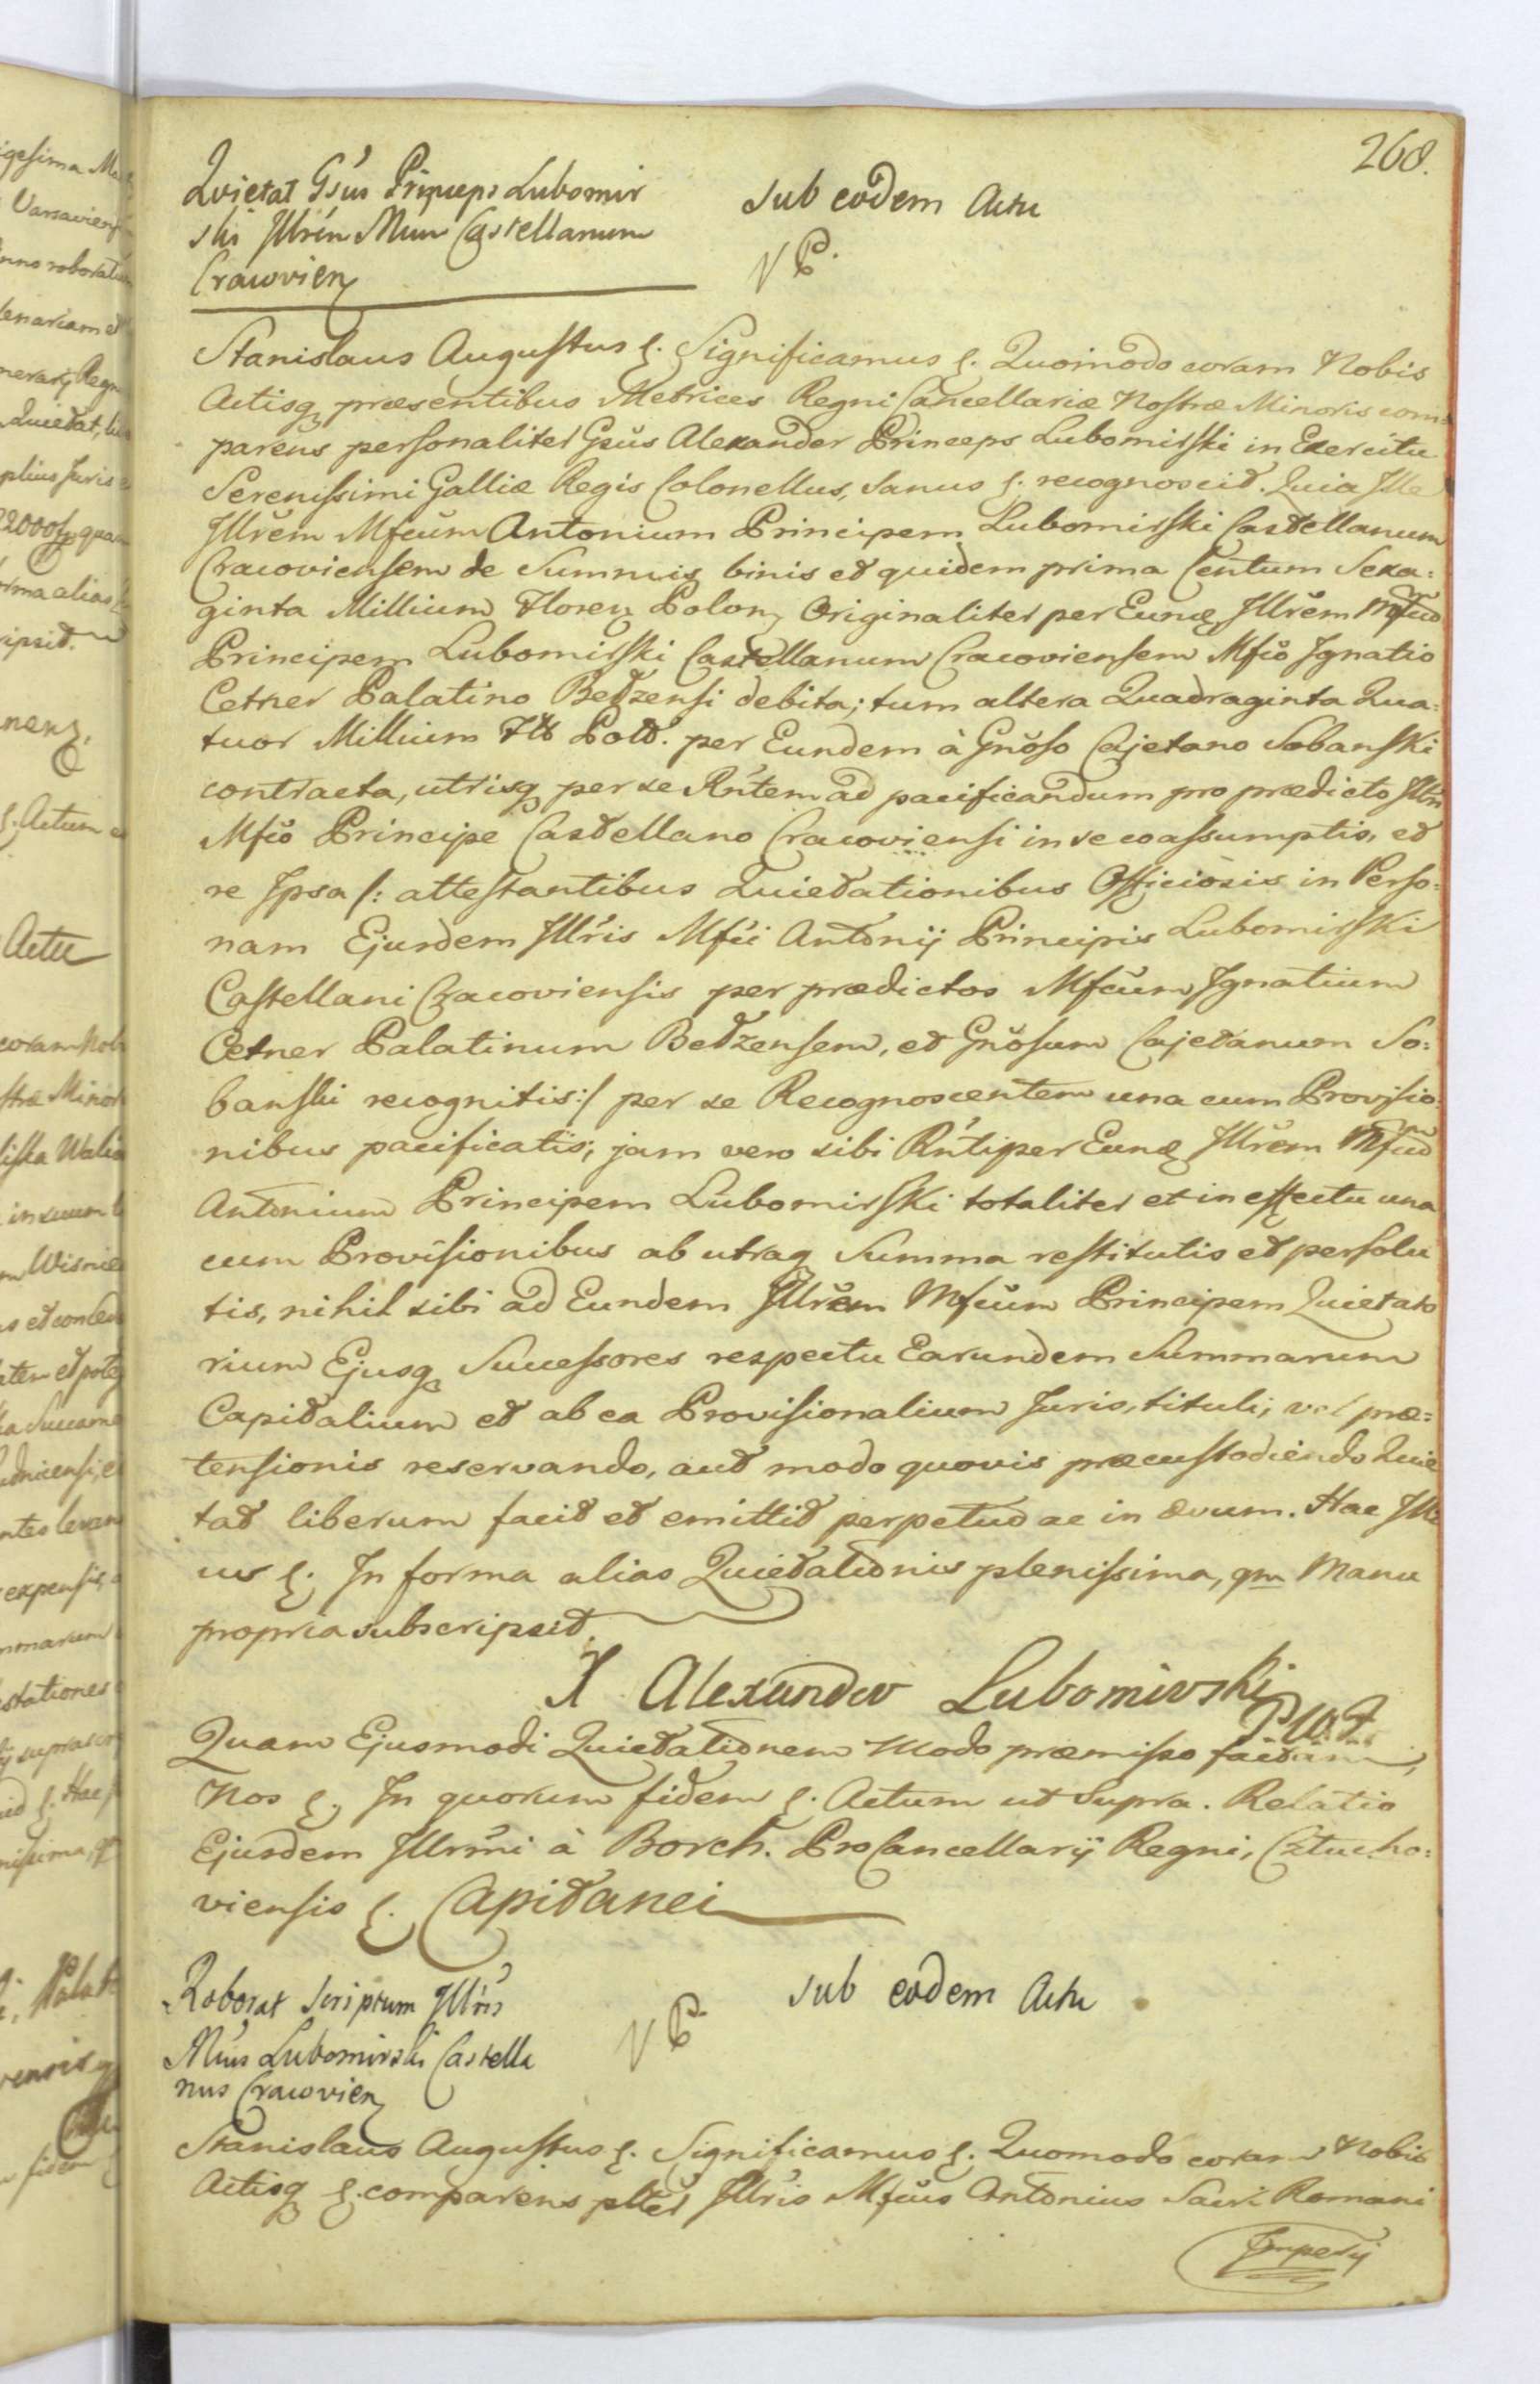 268.
Quietat Gsus Princeps Lubomir
ski Illrem Mum Castellanum
Cracovien
Sub eodem Actu
NP.
Stanislaus Augustus &. Significamus &. Quomodo coram Nobis
Actisq præsentibus Metrices Regni Cancellariæ Nostræ Minoris com=
parens personaliter Gsus Alexander Princeps Lubomirski in Exercitu
Serenissimi Galliæ Regis Colonellus, Sanus &. recognoscit. Quia Ille
Illrem Mfcum Antonium Principem Lubomirski Castellanum
Cracoviensem de Summis binis et quidem prima Centum Sexa=
ginta Millium Floren Polon, Originaliter per Eund Illrem Mfcum
Principem Lubomirski Castellanum Cracoviensem Mfco Ignatio
Cetner Palatino Betzensi debita; tum altera Quadraginta Qua=
tuor Millium Fl Pol. per Eundem à Gnoso Cajetano Sobanski
contracta, utrisq per se Rntem ad pacificandum pro prædicto Illri
Mfco Principe Castellano Cracoviensi in se coassumptis, et
re Ipsa /: attestantibus Quietationibus Officiosis in Perso=
nam Ejusdem Illris Mfci Antonij Principis Lubomirski
Castellani Cracoviensis per prædictos Mfcum Ignatium
Cetner Palatinum Betzensem, et Gnosum Cajetanum So=
banski recognitis :/ per se Recognoscentem una cum Provisio=
nibus pacificatis; jam vero sibi Rnti per Eund Illrem Mfcum
Antonium Principem Lubomirski totaliter et in effectu una
cum Provisionibus ab utraq Summa restitutis et persolu
tis, nihil sibi ad Eundem Illrem Mfcum Principem Quietato
rium Ejusq Successores respectu Earundem Summarum
Capitalium et ab ea Provisionalium Juris, tituli, vel præ=
tensionis reservando, aut modo quovis præcustodiendo Quie
tat liberum facit et emittit perpetuo ac in ævum. Hac Ille
us &. In forma alias Quietationis plenissima, qm Manu
propria subscripsit.
X Alexander Lubomirski
Quam Ejusmodi Quietationem Modo præmisso factam,
Nos &. In quorum fidem &. Actum ut Supra. Relatio
Ejusdem Illrmi à Borch. ProCancellarij Regni, Cztucho=
viensis &. Capitanei
Roborat Scriptum Illris
Mus Lubomirski Castella
nus Cracovien
NP
Sub eodem Actu
Stanislaus Augustus &. Significamus &. Quomodo coram Nobis
Actisq &. comparens plter Illris Mfcus Antonius Sacri Romani
Imperij